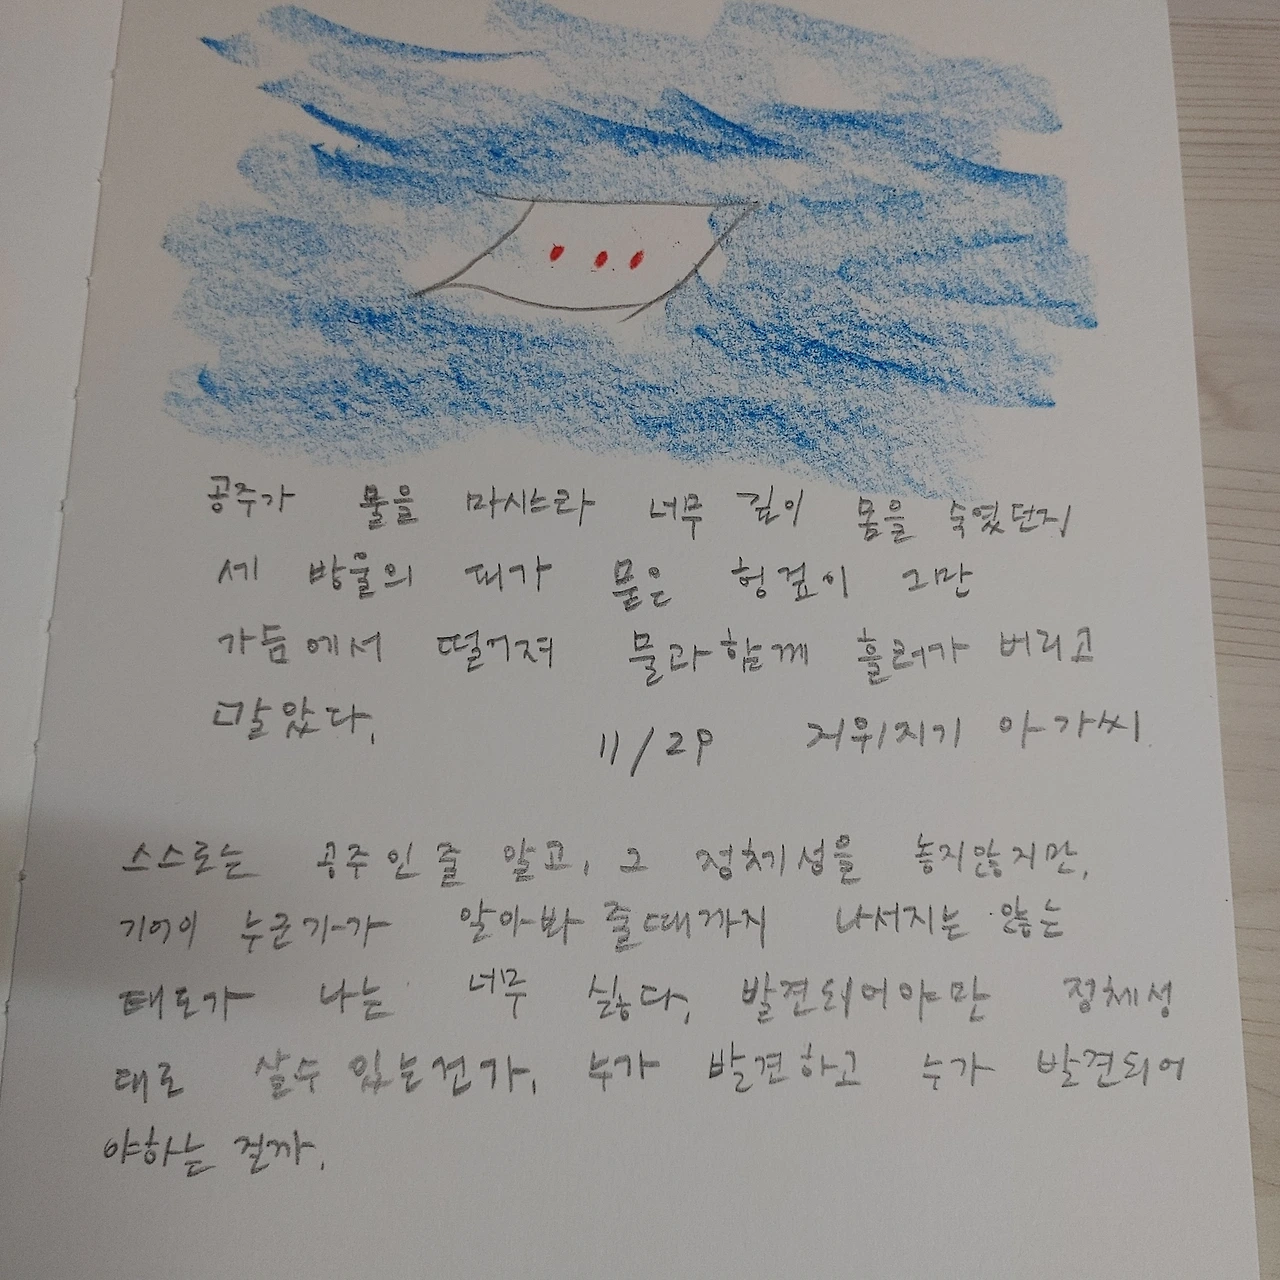 공주가 물을 마시느라 너무 깊이 몸을 숙였던지
세 방울의 피가 묻은 헝겊이 그만
가슴에서 떨어져 물과 함께 흘러가 버리고
말았다.
11/29 거위지기 아가씨.
스스로는 공주인 줄 알고, 그 정체성을 놓지않지만,
기어이 누군가가 알아봐 줄때까지 나서지는 않는
태도가 나는 너무 싫다. 발견되어야만 정체성
대로 살수 있는건가. 누가 발견하고 누가 발견되어
야하는 걸까.